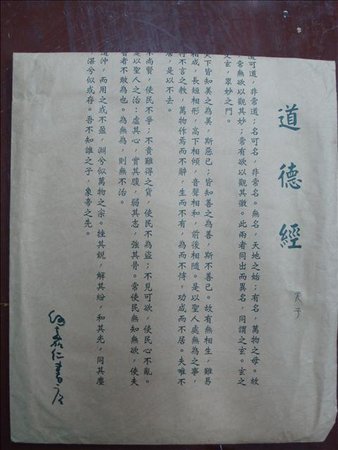 道德經
道可道,非常道;名可名,非常名。無名,天地之始;有名,萬物之母。故
常無欲以觀其妙;常有欲以觀其徼。此兩者同出而異名,同謂之玄。玄之
又玄,眾妙之門。
天下皆知美之為美,斯惡已;皆知善之為善,斯不善已。故有無相生,難易
相成,長短相形,高下相傾,音聲相和,前後相隨。是以聖人處無為之事,
行不言之教;萬物作焉而不辭,生而不有,為而不恃,功成而不居。夫唯不
居,是以不去。
不尚賢,使民不爭;不貴難得之貨,使民不為盜;不見可欲,使民心不亂。
是以聖人之治:虛其心,實其腹,弱其志,強其骨。常使民無知無欲,使夫
智者不敢為也。為無為,則無不治。
道沖,而用之或不盈。淵兮似萬物之宗。挫其銳,解其紛,和其光,同其塵
湛兮似或存。吾不知誰之子,象帝之先。